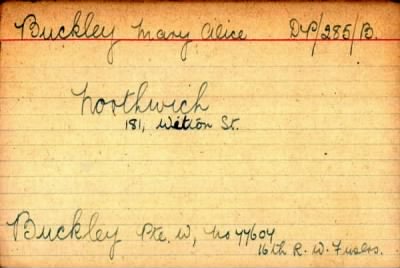 Buckley Mary Alice DP/285/B.
Northwich
181, Witton St.
Buckley Pte. W, No 77604
16th R. W. Fusrs.